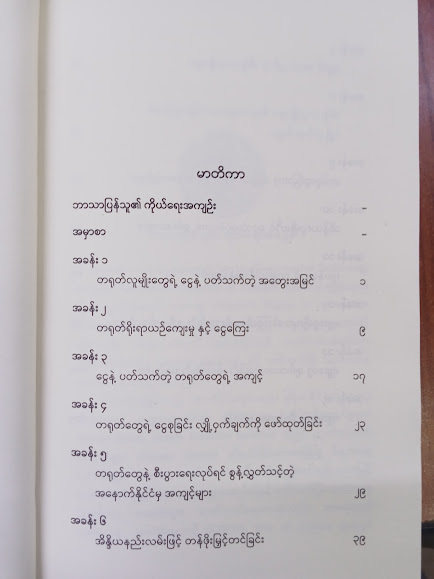 မာတိကာ
ဘာသာပြန်သူ၏ ကိုယ်ရေးအကျဉ်း –
အမှာစာ –
အခန်း ၁
တရုတ်လူမျိုးတွေရဲ့ ငွေနဲ့ ပတ်သက်တဲ့ အတွေးအမြင် ၁
အခန်း ၂
တရုတ်ရိုးရာယဉ်ကျေးမှု နှင့် ငွေကြေး ၉
အခန်း ၃
ငွေနဲ့ ပတ်သက်တဲ့ တရုတ်တွေရဲ့ အကျင့် ၁၇
အခန်း ၄
တရုတ်တွေရဲ့ ငွေစုခြင်း လျှို့ဝှက်ချက်ကို ဖော်ထုတ်ခြင်း ၂၃
အခန်း ၅
တရုတ်တွေနဲ့ စီးပွားရေးလုပ်ရင် စွန့်လွှတ်သင့်တဲ့
အနောက်နိုင်ငံမှ အကျင့်များ ၂၉
အခန်း ၆
အိန္ဒိယနည်းလမ်းဖြင့် တန်ဖိုးမြှင့်တင်ခြင်း ၃၉